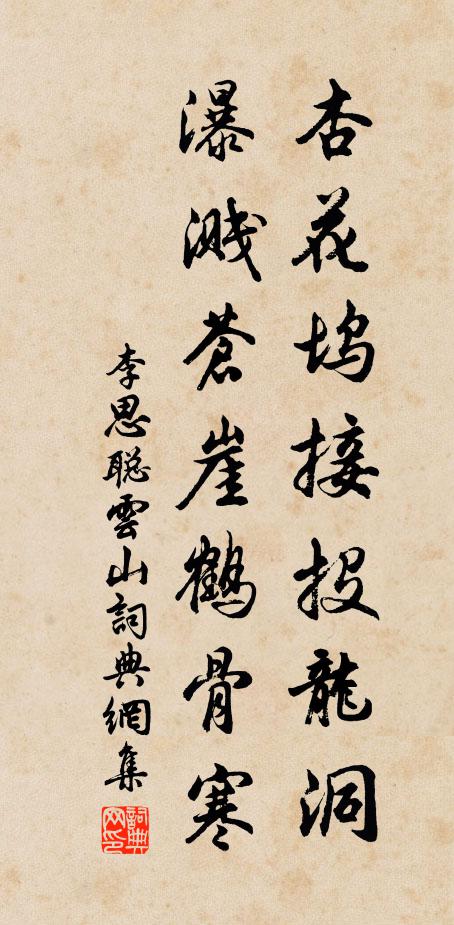 杏花坞接投龍洞
瀑溅蒼崖鶴骨寒
李思聪雲山詞典網集
詞典网印